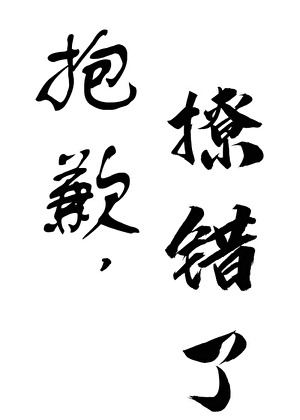 抱歉，
撩错了